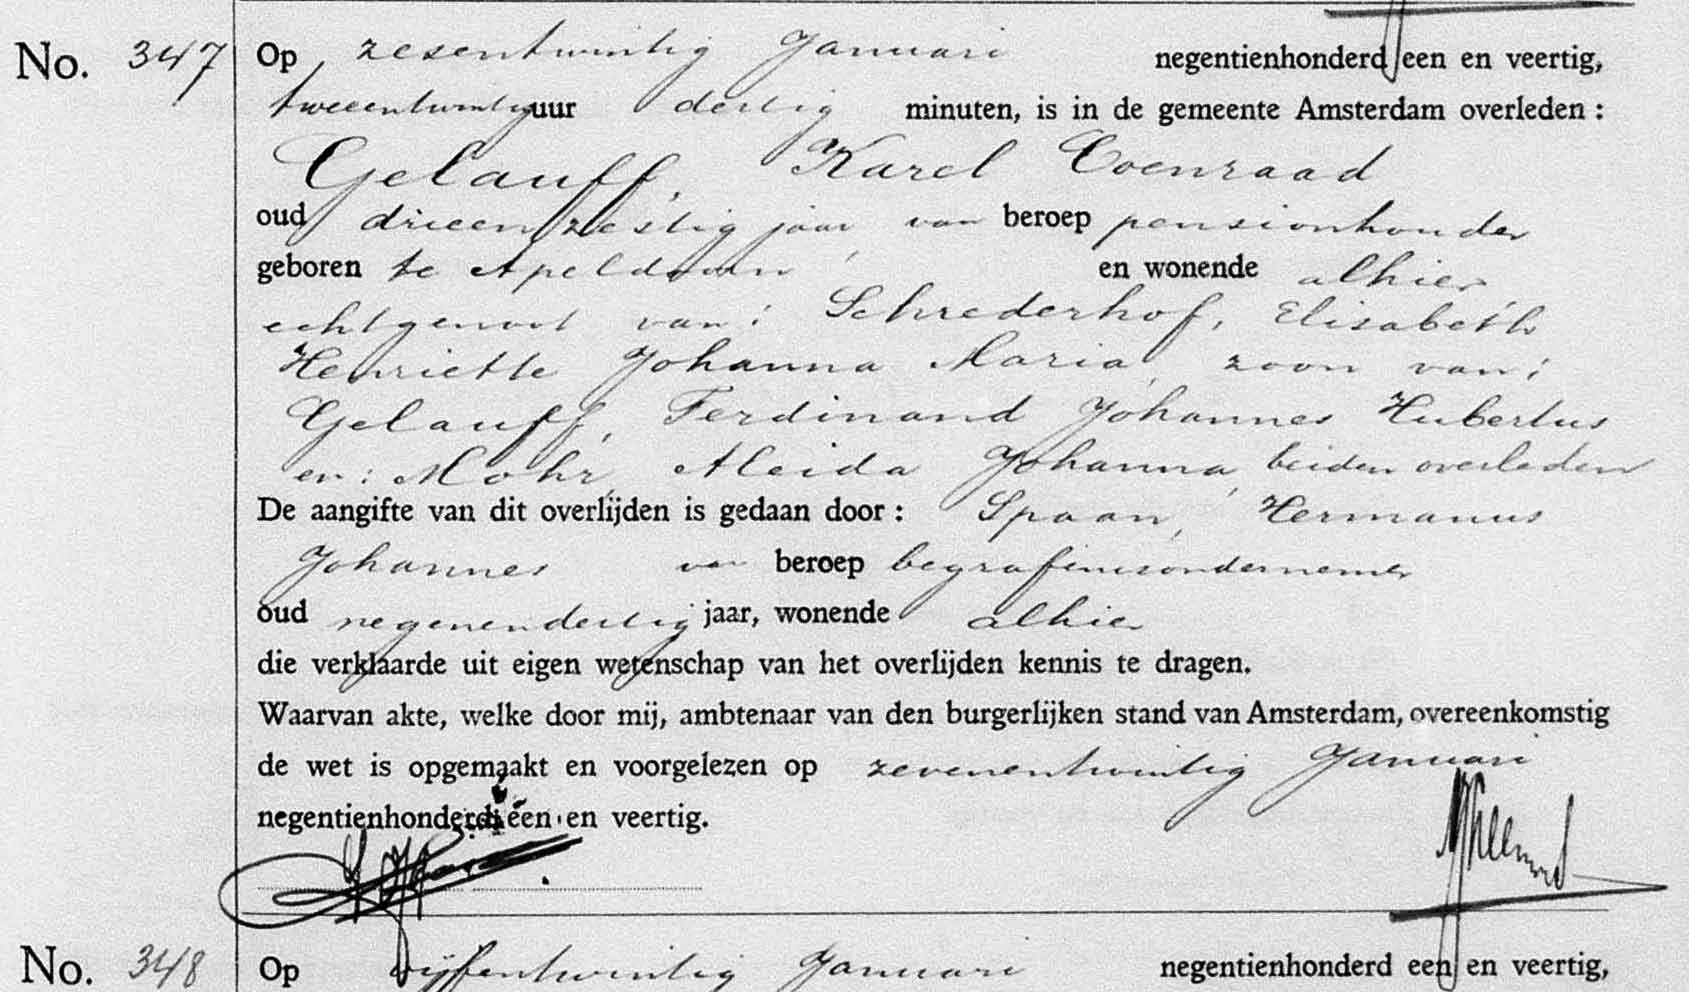 No. 347 Op zesentwintig Januari negentienhonderd een en veertig,
tweeentwintig uur dertig minuten, is in de gemeente Amsterdam overleden :
Gelauff, Karel Coenraad
oud drieenzestig jaar, van beroep pensionhouder
geboren te Apeldoorn, en wonende alhier
echtgenoot van: Schrederhof, Elisabeth
Henriette Johanna Maria, zoon van:
Gelauff, Ferdinand Johannes Hubertus
en: Mohr, Aleida Johanna, beiden overleden
De aangifte van dit overlijden is gedaan door : Spaan, Hermanus
Johannes van beroep begrafenisondernemer
oud negenendertig jaar, wonende alhier
die verklaarde uit eigen wetenschap van het overlijden kennis te dragen.
Waarvan akte, welke door mij, ambtenaar van den burgerlijken stand van Amsterdam, overeenkomstig
de wet is opgemaakt en voorgelezen op zevenentwintig Januari
negentienhonderd een en veertig.
No. 348 Op vijfentwintig Januari negentienhonderd een en veertig,